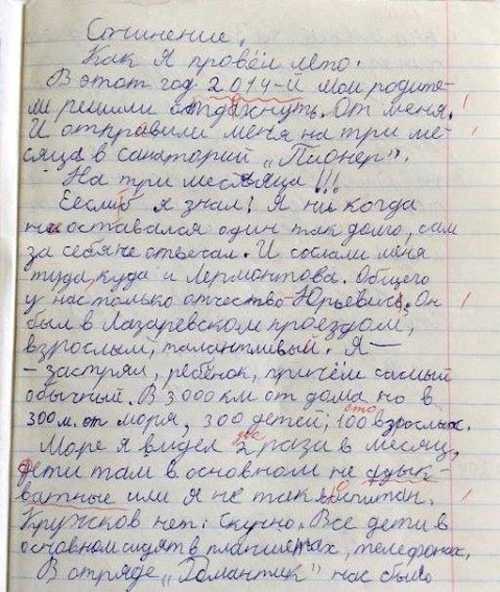 Сочинение.
Как я провёл лето.
В этот год 2014-й мои родите-
ли решили отдахнуть. От меня.
И отправили меня на три ме-
сяца в санаторий „Пионер".
На три месяца!!!
Если б я знал! Я ни когда
не оставался один так долго, сам
за себя не отвечал. И сослали меня
туда, куда и Лермонтова. Общего
у нас только отчество - Юрьевич. Он
был в Лазаревском проездом,
взрослый, талантливый. Я —
- застрял, ребёнок, причём самый
обычный. В 3000 км от дома но в
300 м. от моря, 300 детей, 100 сто взрослых.
Море я видел 2 два раза в месяц,
дети там в основном не адык-
ватные или я не так воспитан.
Кружков нет. Скучно. Все дети в
основном сидят в планшетах, телефонах.
В отряде „Романтик" нас было